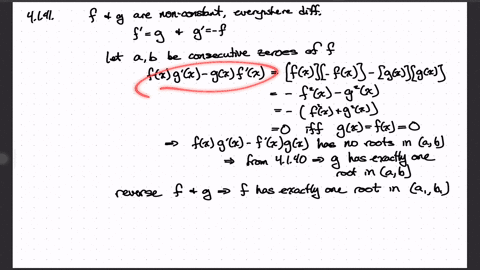 4.1.41. f & g are non-constant, everywhere diff.
f' = g & g' = -f
let a, b be consecutive zeroes of f
f(x) g'(x) - g(x) f'(x) = [f(x)][-f(x)] - [g(x)][g(x)]
= - f²(x) - g²(x)
= - (f²(x) + g²(x))
= 0 iff g(x) = f(x) = 0
⇒ f(x) g'(x) - f'(x) g(x) has no roots in (a, b)
⇒ from 4.1.40 ⇒ g has exactly one
root in (a, b)
reverse f & g ⇒ f has exactly one root in (a₁, b₁)